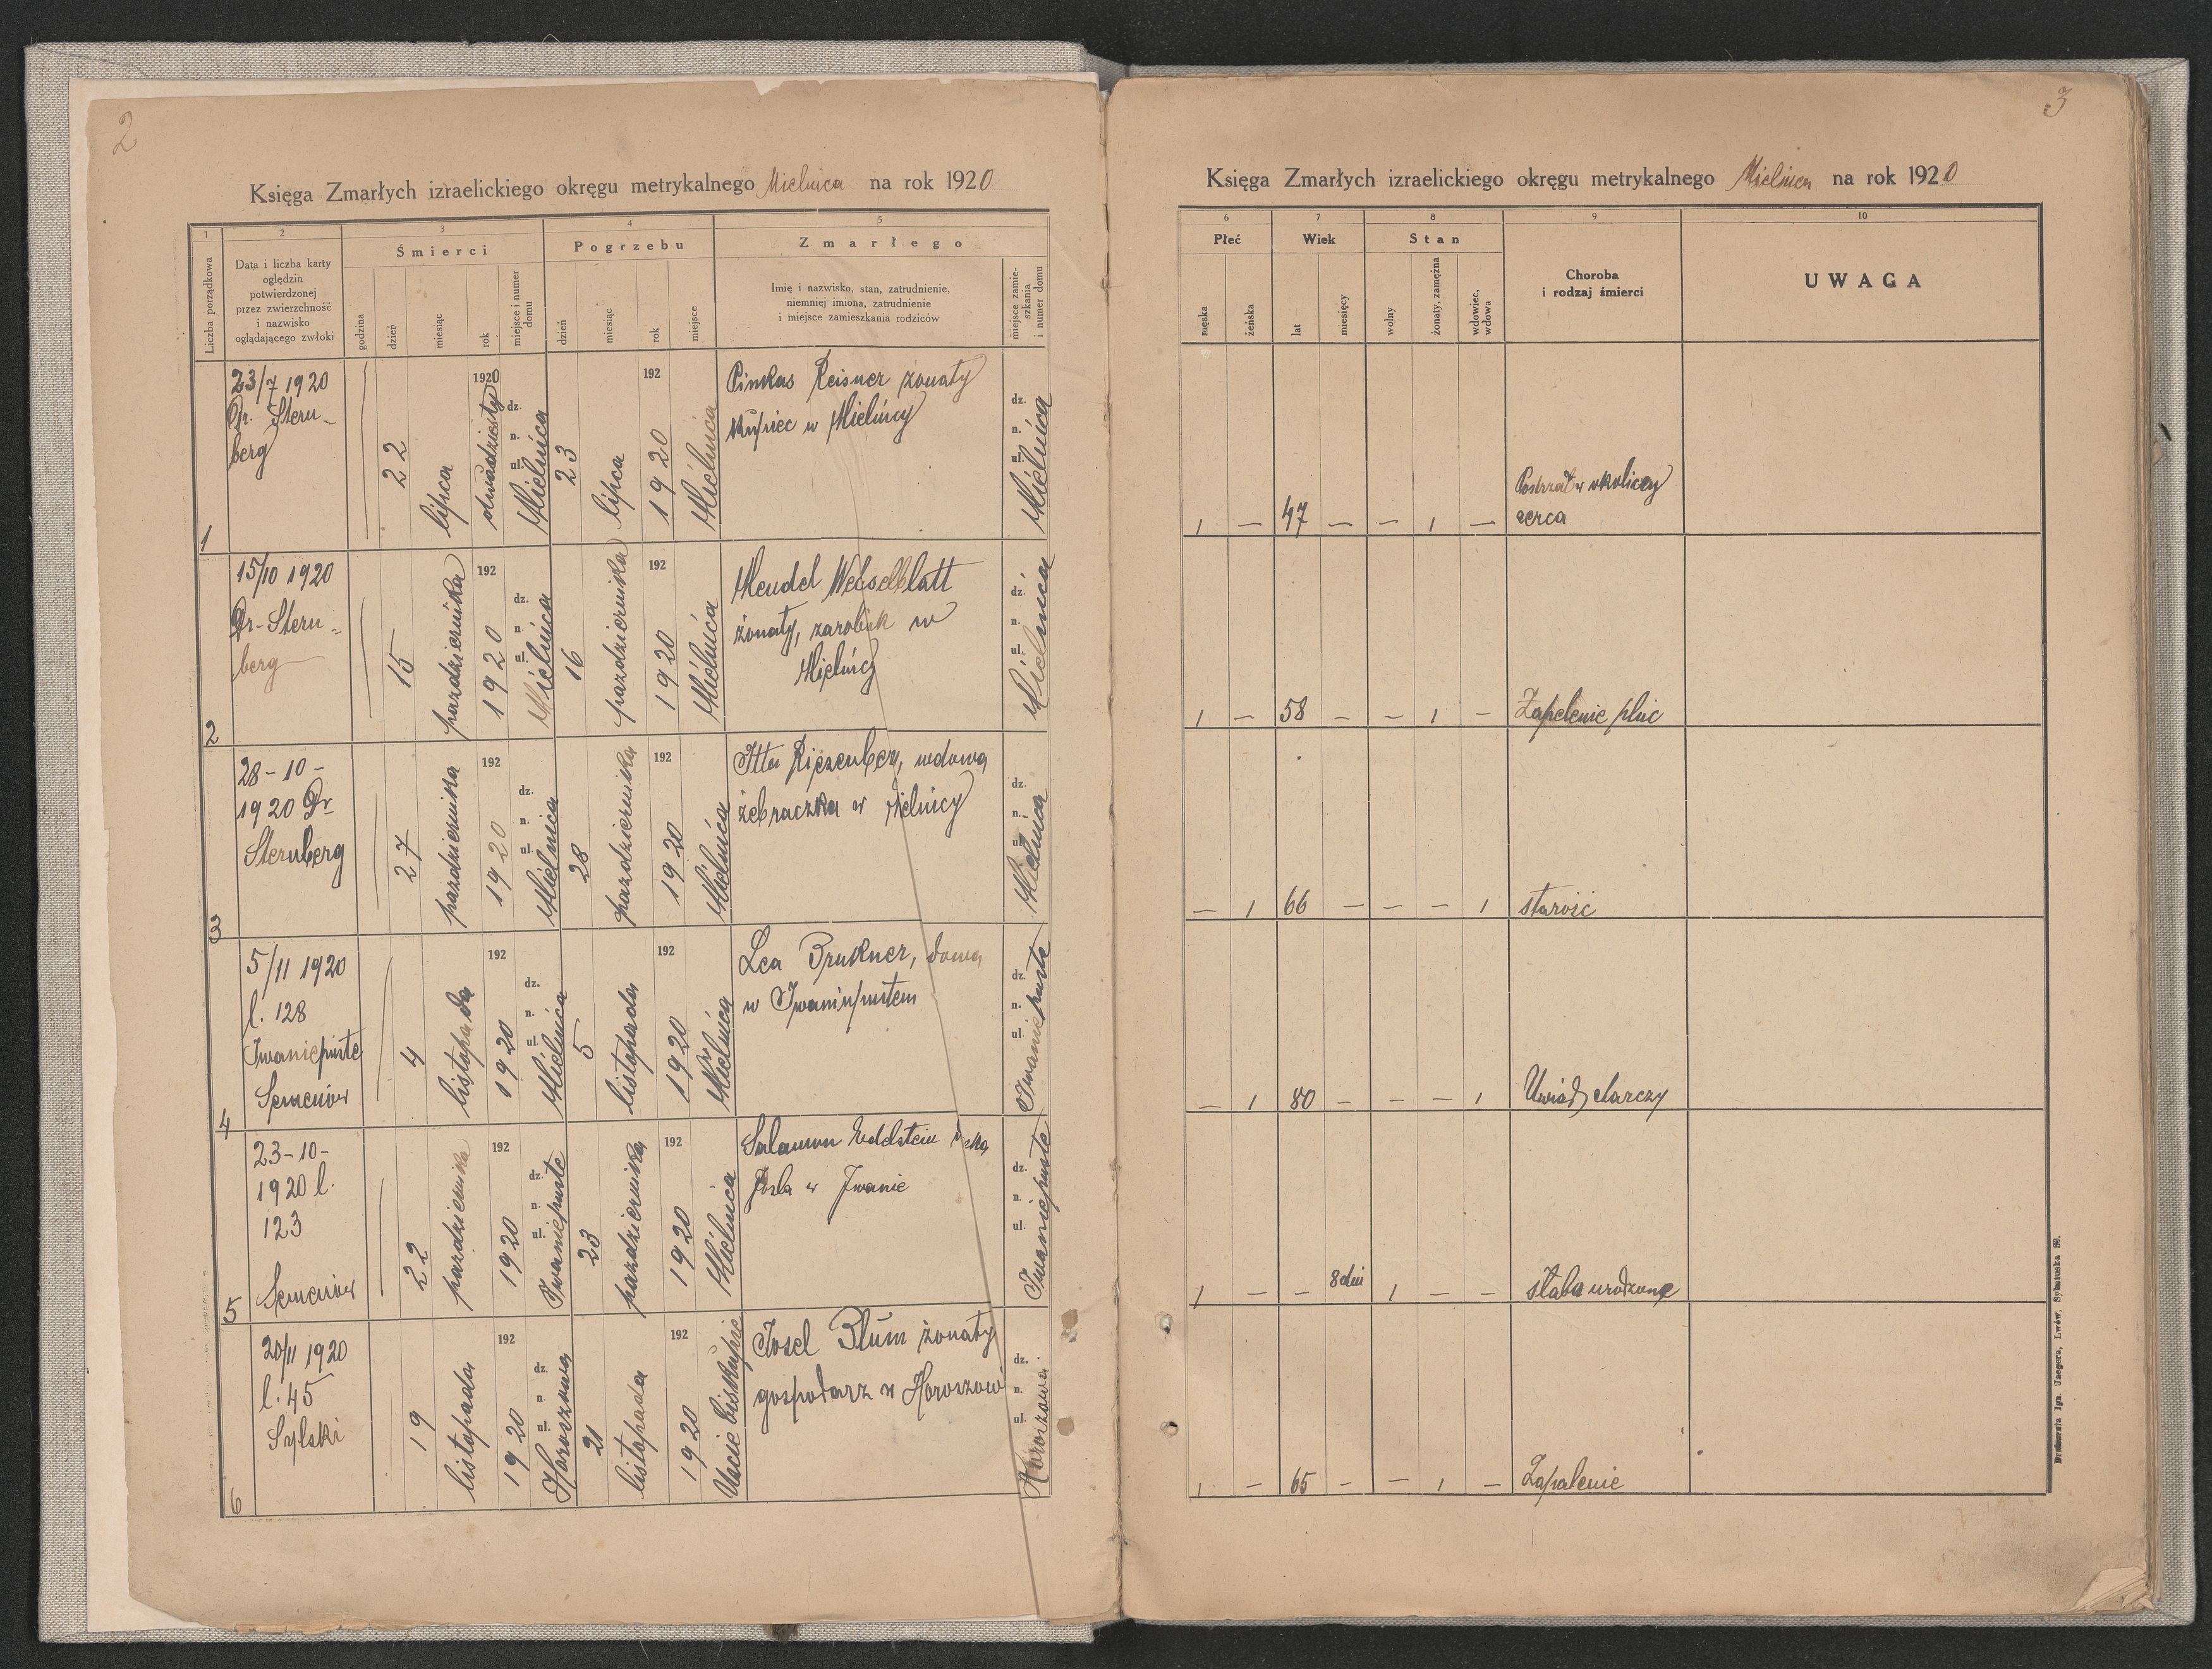 2
Księga Zmarłych izraelickiego okręgu metrykalnego Mielnica na rok 1920
1
2
3
4
5
Liczba porządkowa
Data i liczba karty
oględzin
potwierdzonej
przez zwierzchność
i nazwisko
oglądającego zwłoki
Śmierci
godzina
dzień
miesiąc
rok
miejsce i numer
domu
Pogrzebu
dzień
miesiąc
rok
miejsce
Zmarłego
Imię i nazwisko, stan, zatrudnienie,
niemniej imiona, zatrudnienie
i miejsce zamieszkania rodziców
miejsce zamie-
szkania
i numer domu
1
23/7 1920
Dr. Stern-
berg
22
lipca
1920
dwudziesty
dz.
n.
ul.
Mielnica
23
lipca
192
1920
Mielnica
Pinkas Reisner żonaty
kupiec w Mielnicy
dz.
n.
ul.
Mielnica
2
15/10 1920
Dr. Stern-
berg
15
października
192
1920
dz.
n.
ul.
Mielnica
16
października
192
1920
Mielnica
Mendel Wechselblatt
żonaty, zarobek w
Mielnicy
dz.
n.
ul.
Mielnica
3
28-10-
1920 Dr
Sternberg
27
października
192
1920
dz.
n.
ul.
Mielnica
28
października
192
1920
Mielnica
Itta wdowa
żebraczka w Mielnicy
dz.
n.
ul.
Mielnica
4
5/11 1920
l. 128
Iwaniepuste
Semeniów
4
listopada
192
1920
dz.
n.
ul.
Mielnica
5
listopada
192
1920
Mielnica
Lea Brukner,
w Iwaniupustem
dz.
n.
ul.
Iwaniepuste
5
23-10-
1920 l.
123
Semeniów
22
października
192
1920
dz.
n.
ul.
Iwaniepuste
23
października
192
1920
Mielnica
Salamon Eddelstein
Josla w Iwanie
dz.
n.
ul.
Iwaniepuste
6
20/11 1920
l. 45
Sylski
19
listopada
192
1920
dz.
n.
ul.
Horoszowa
21
listopada
192
1920
Uscie biskupie
Josel Blum żonaty
gospodarz w Horoszow
dz.
n.
ul.
Horoszowa
3
Księga Zmarłych izraelickiego okręgu metrykalnego Mielnica na rok 1920
6
7
8
9
10
Płeć
męska
żeńska
Wiek
lat
miesięcy
Stan
wolny
żonaty, zamężna
wdowiec,
wdowa
Choroba
i rodzaj śmierci
UWAGA
1 — 47 — — 1 — Postrzał w okolicy
serca
1 — 58 — — 1 — Zapalenie płuc
— 1 66 — — — 1 starość
— 1 80 — — — 1 Uwiąd starczy
1 — — 8 dni 1 — — słabo urodzone
1 — 65 — — 1 — Zapalenie
Drukarnia Ign. Jaegera, Lwów, Sykstuska